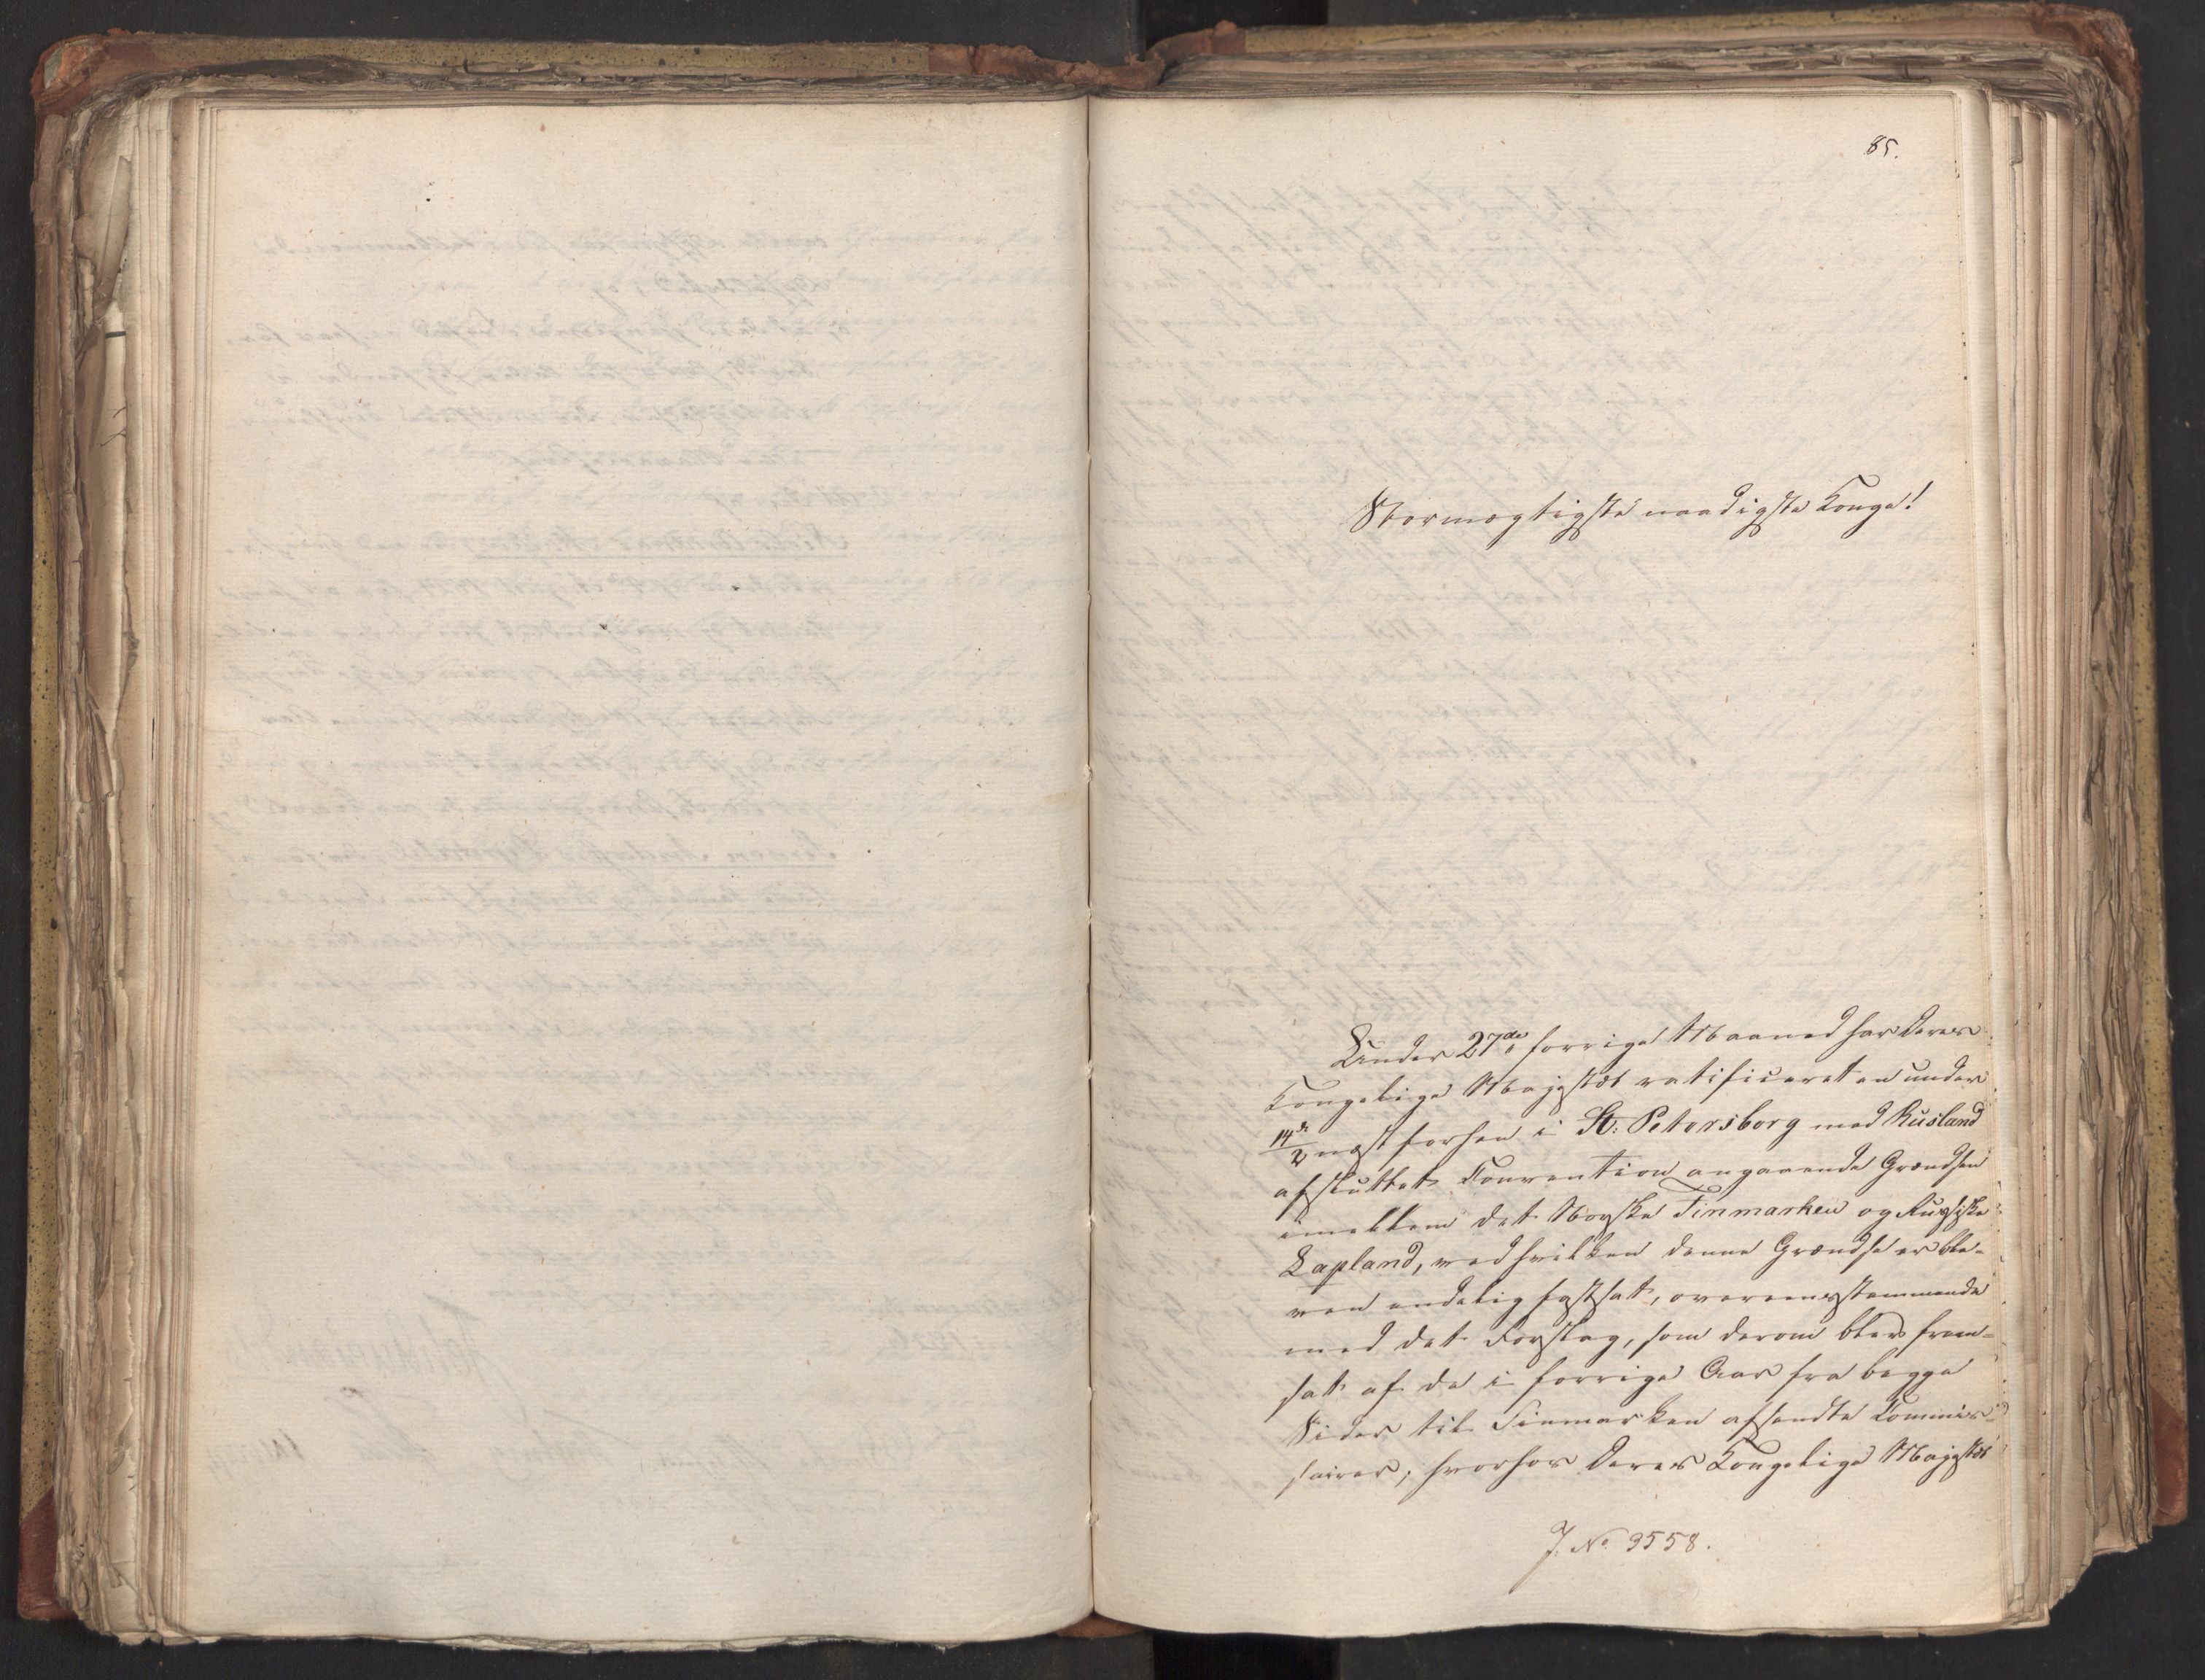 85.
Stormægtigste naadigste Konge!
Under 27de forrige Maaned har Deres
Kongelige Majestæt ratificeret en under
14de/2 næstforhen i St: Petersborg med Rusland
afsluttet Convention angaaende Grændsen
imellem det Norske Finmarken og Russiske
Lapland, ved hvilken denne Grændse er ble-
ven endelig fastsat, overeensstemmende
med det Forslag, som derom blev frem-
sat af de i forrige Aar fra begge
Sider til Finmarken afsendte Commis-
sairer; hvorhos Deres Kongelige Majestæt
J. No 3558.